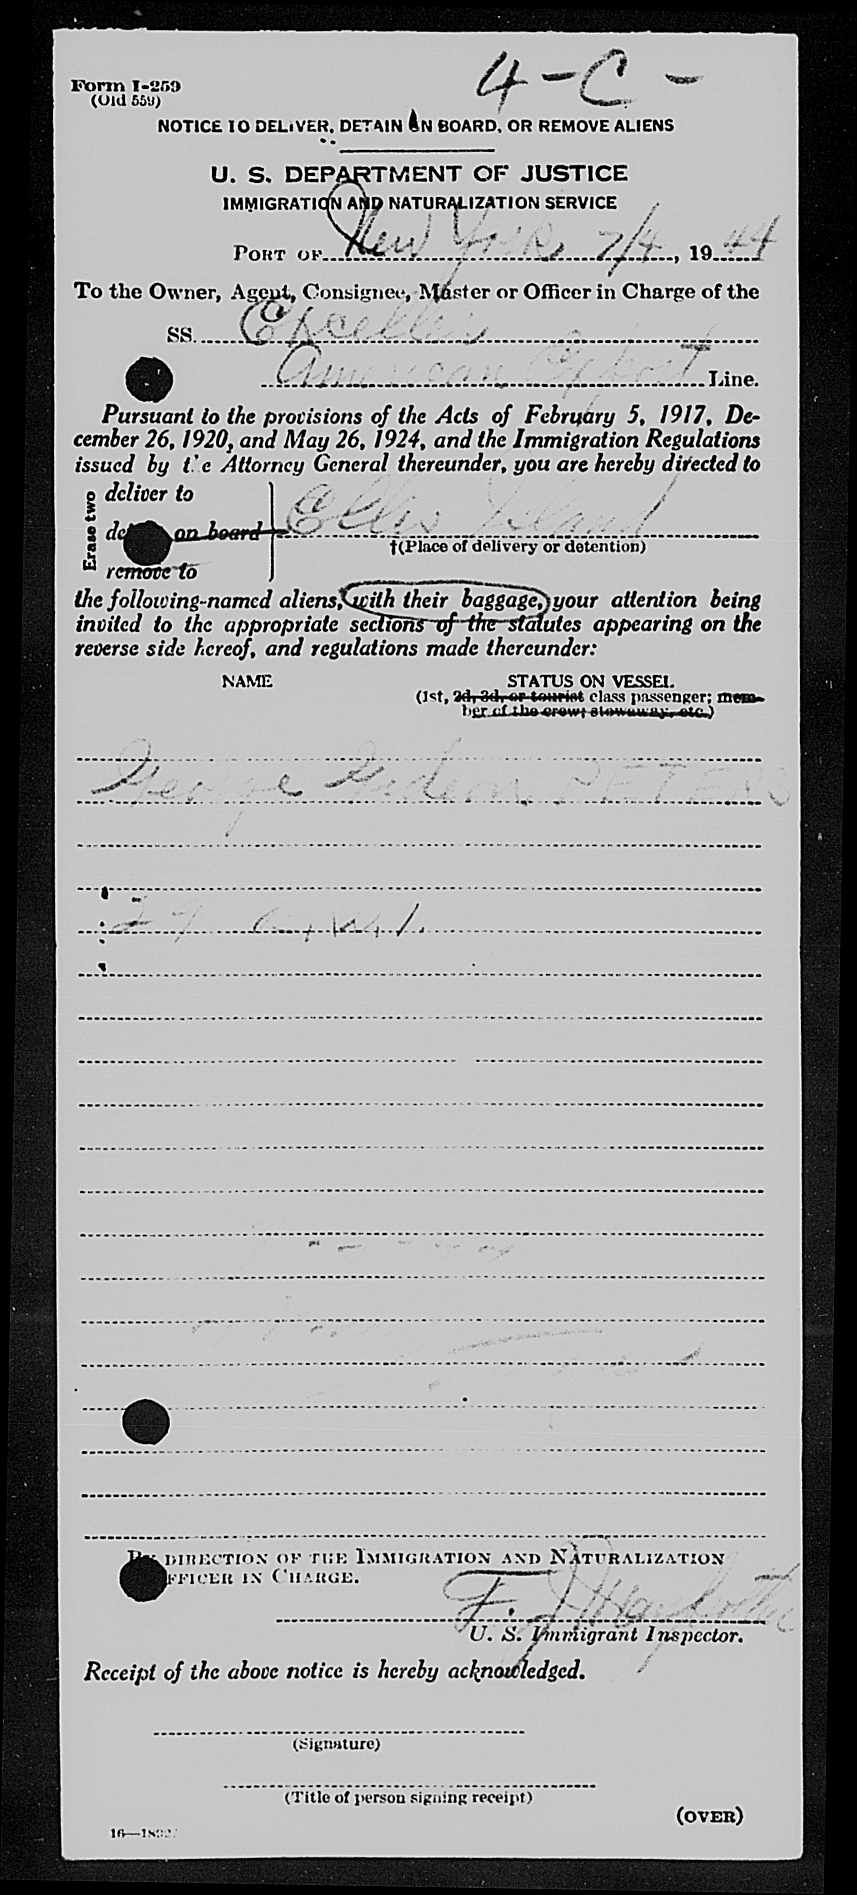 4-C-
Form I-259
(Old 559)
NOTICE TO DELIVER, DETAIN ON BOARD, OR REMOVE ALIENS
U. S. DEPARTMENT OF JUSTICE
IMMIGRATION AND NATURALIZATION SERVICE
PORT OF New York, 7/4, 1944
To the Owner, Agent, Consignee, Master or Officer in Charge of the
SS. Exceller
American Export Line.
Pursuant to the provisions of the Acts of February 5, 1917, De-
cember 26, 1920, and May 26, 1924, and the Immigration Regulations
issued by the Attorney General thereunder, you are hereby directed to
Erase two
deliver to
on board
remove to
Ellis Island
†(Place of delivery or detention)
the following-named aliens, with their baggage, your attention being
invited to the appropriate sections of the statutes appearing on the
reverse side hereof, and regulations made thereunder:
NAME STATUS ON VESSEL
(1st, 2d, 3d, or tourist class passenger; mem-
ber of the crew; stowaway, etc.)
George Gideon PETERS
27
BY DIRECTION OF THE IMMIGRATION AND NATURALIZATION
OFFICER IN CHARGE.
F. J.
U. S. Immigrant Inspector.
Receipt of the above notice is hereby acknowledged.
(Signature)
(Title of person signing receipt)
(OVER)